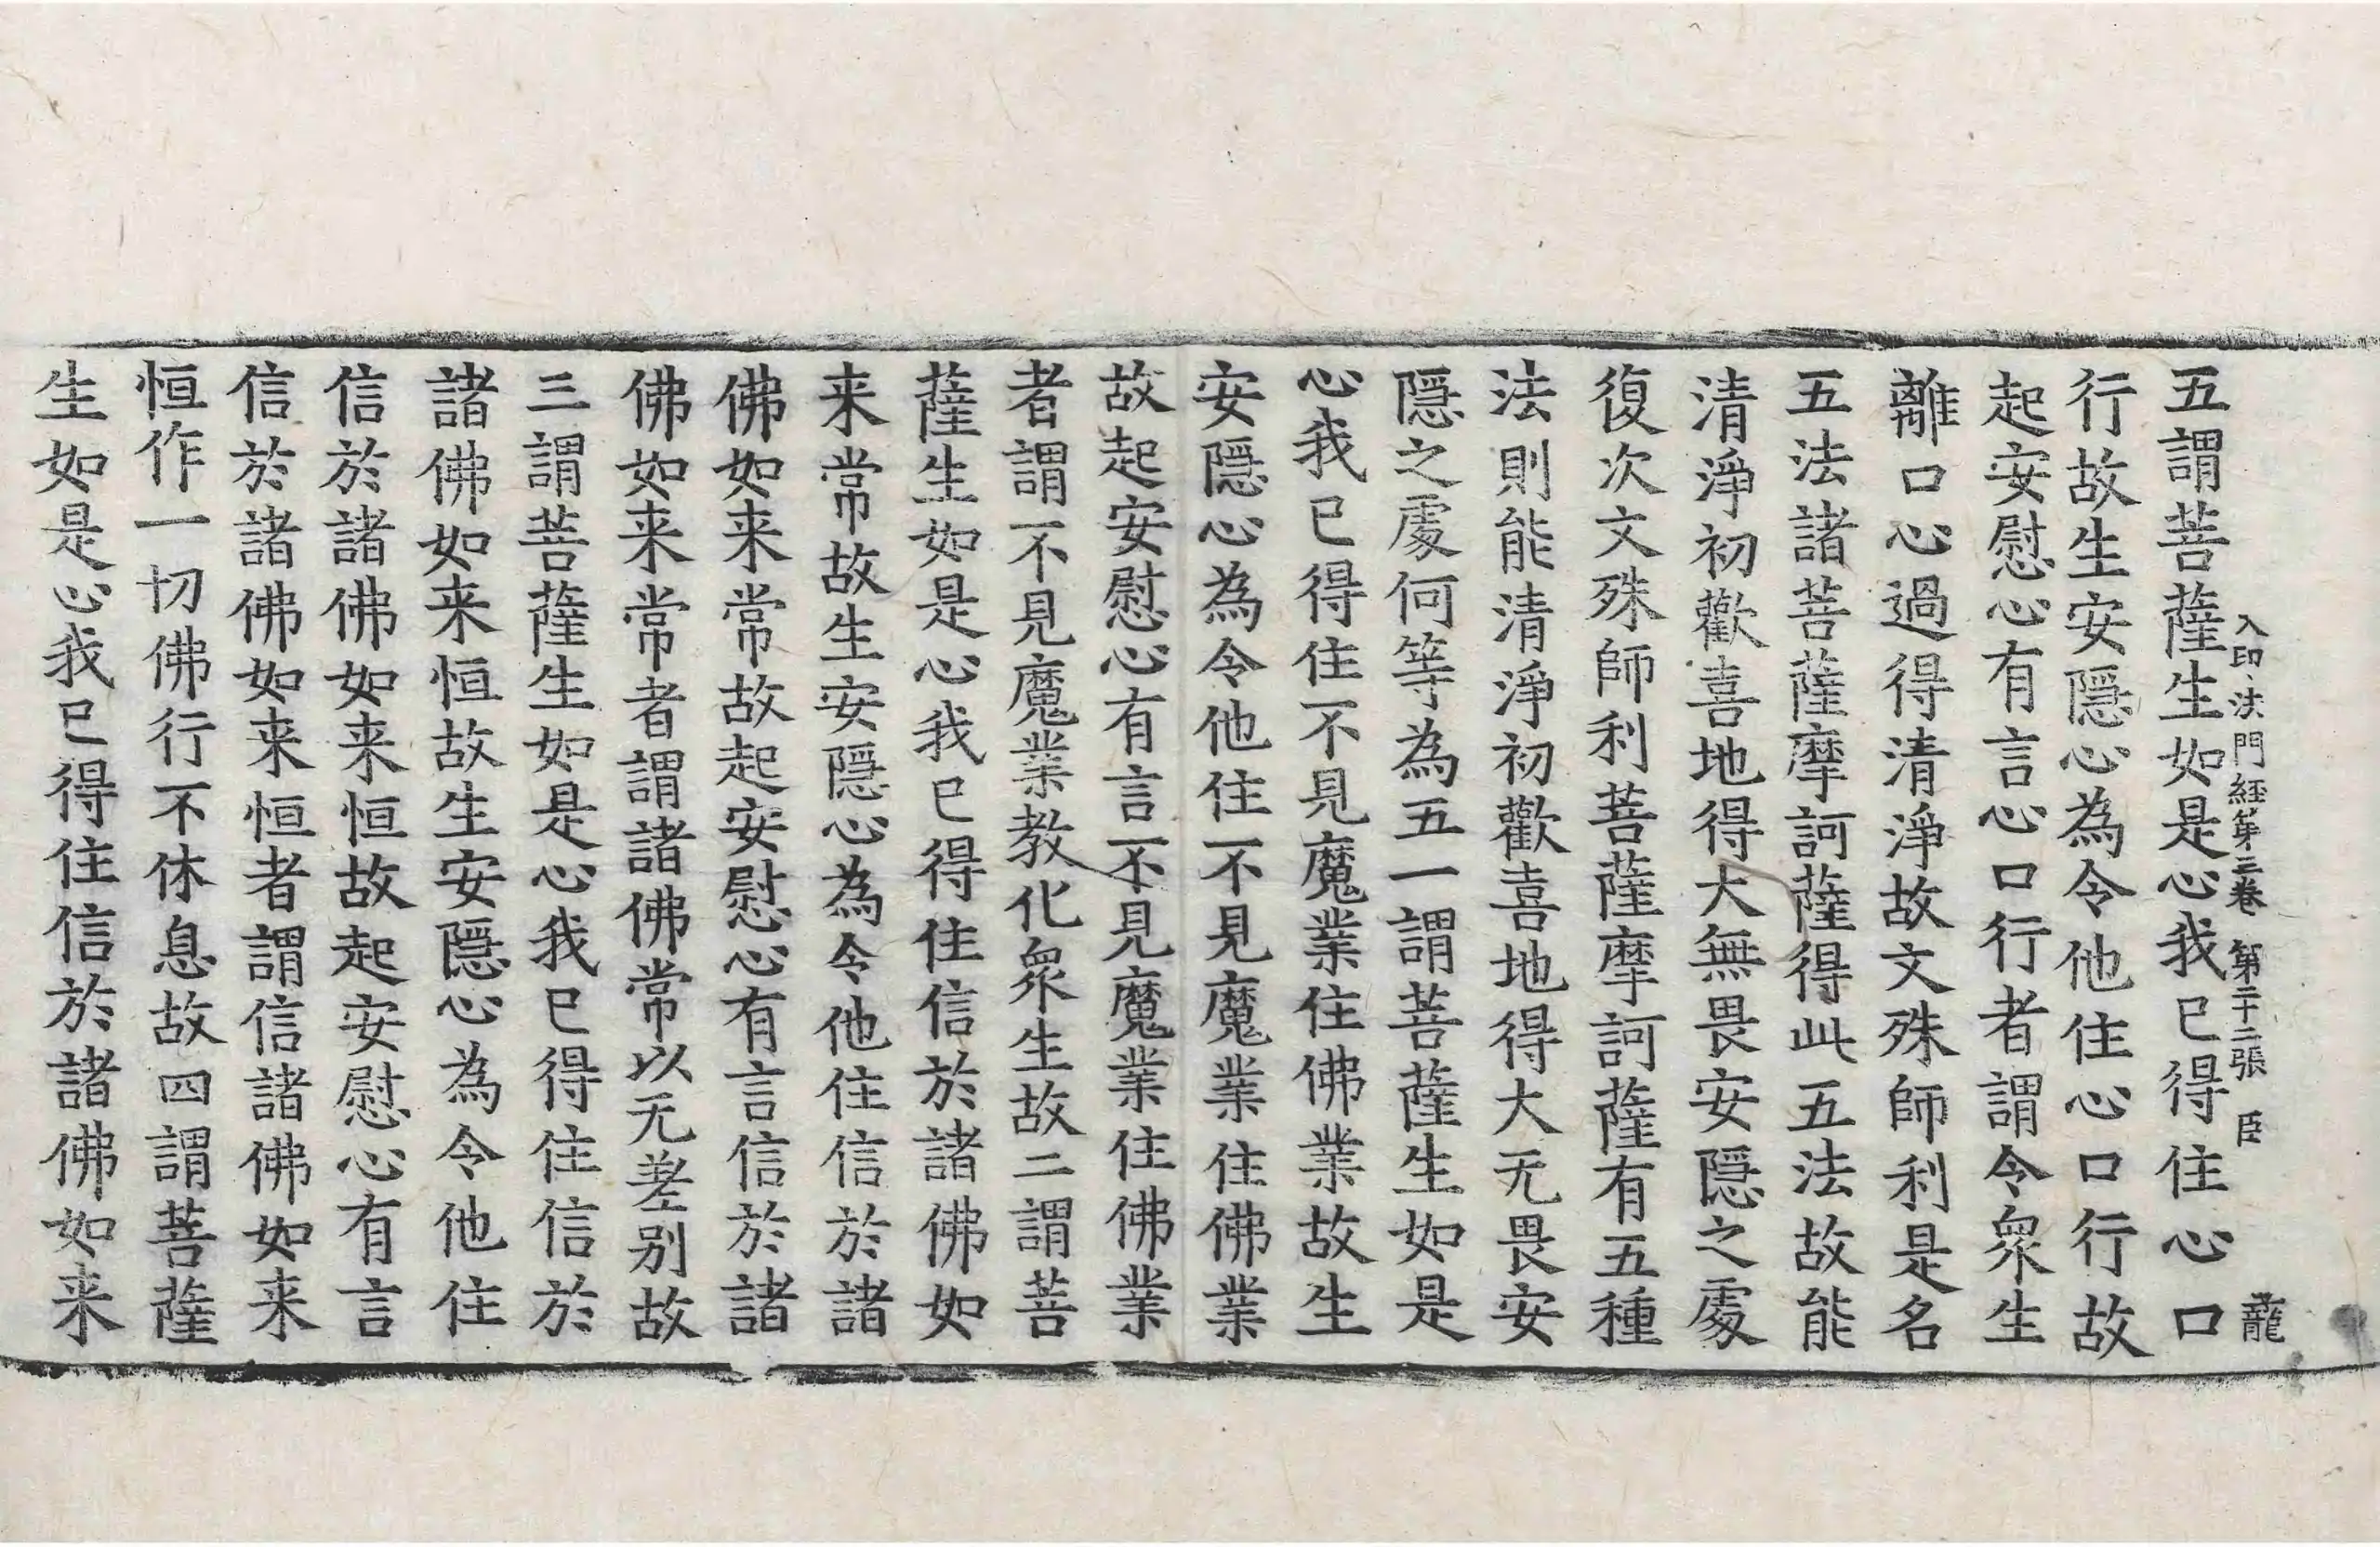 入印法門經第三卷 第二十二張 臣 龍
五謂菩薩生如是心我已得住心口
行故生安隱心為令他住心口行故
起安慰心有言心口行者謂令衆生
離口心過得清淨故文殊師利是名
五法諸菩薩摩訶薩得此五法故能
清淨初歡喜地得大無畏安隱之處
復次文殊師利菩薩摩訶薩有五種
法則能清淨初歡喜地得大无畏安
隱之處何等為五一謂菩薩生如是
心我已得住不見魔業住佛業故生
安隱心為令他住不見魔業住佛業
故起安慰心有言不見魔業住佛業
者謂不見魔業教化衆生故二謂菩
薩生如是心我已得住信於諸佛如
来常故生安隱心為令他住信於諸
佛如来常故起安慰心有言信於諸
佛如来常者謂諸佛常以无差别故
三謂菩薩生如是心我已得住信於
諸佛如来恒故生安隱心為令他住
信於諸佛如来恒故起安慰心有言
信於諸佛如来恒者謂信諸佛如来
恒作一切佛行不休息故四謂菩薩
生如是心我已得住信於諸佛如来